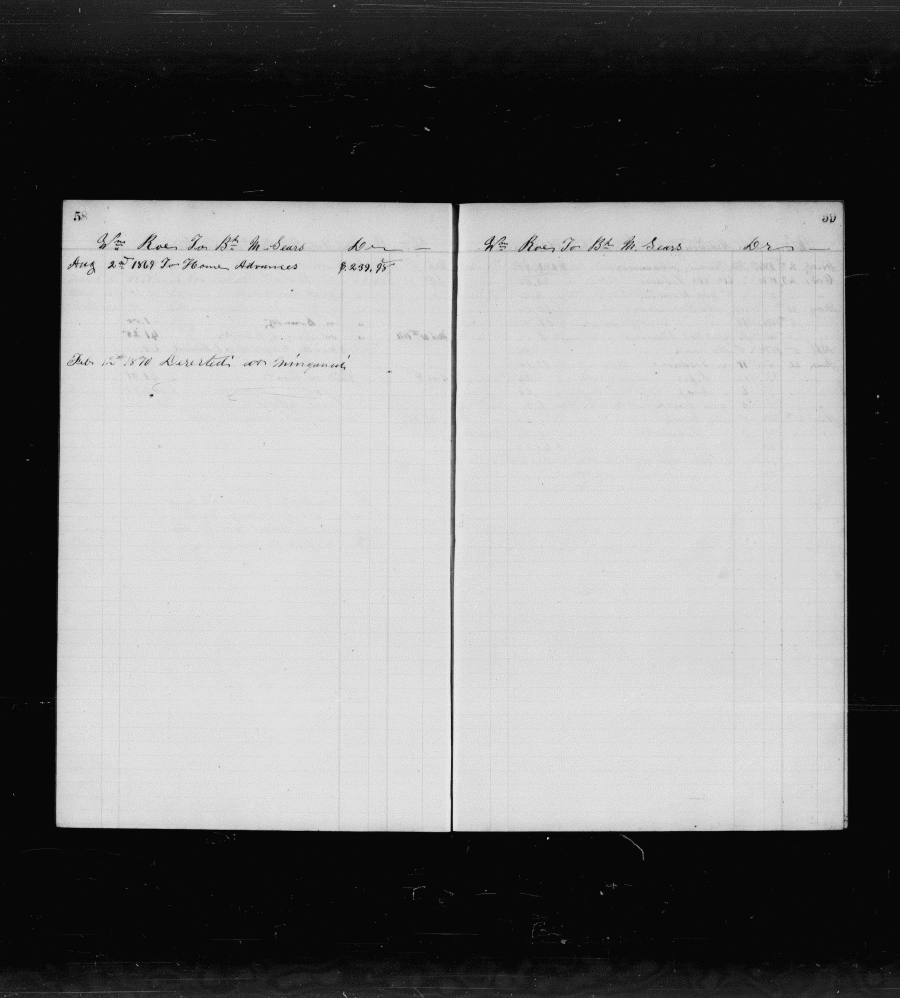 58
Wm Roe To Bk M. Sears Dr
Aug 2nd 1869 To Home Advances $.239.95
Feb 12th 1870 Deserted at
59
Wm Roe To Bk M. Sears Dr